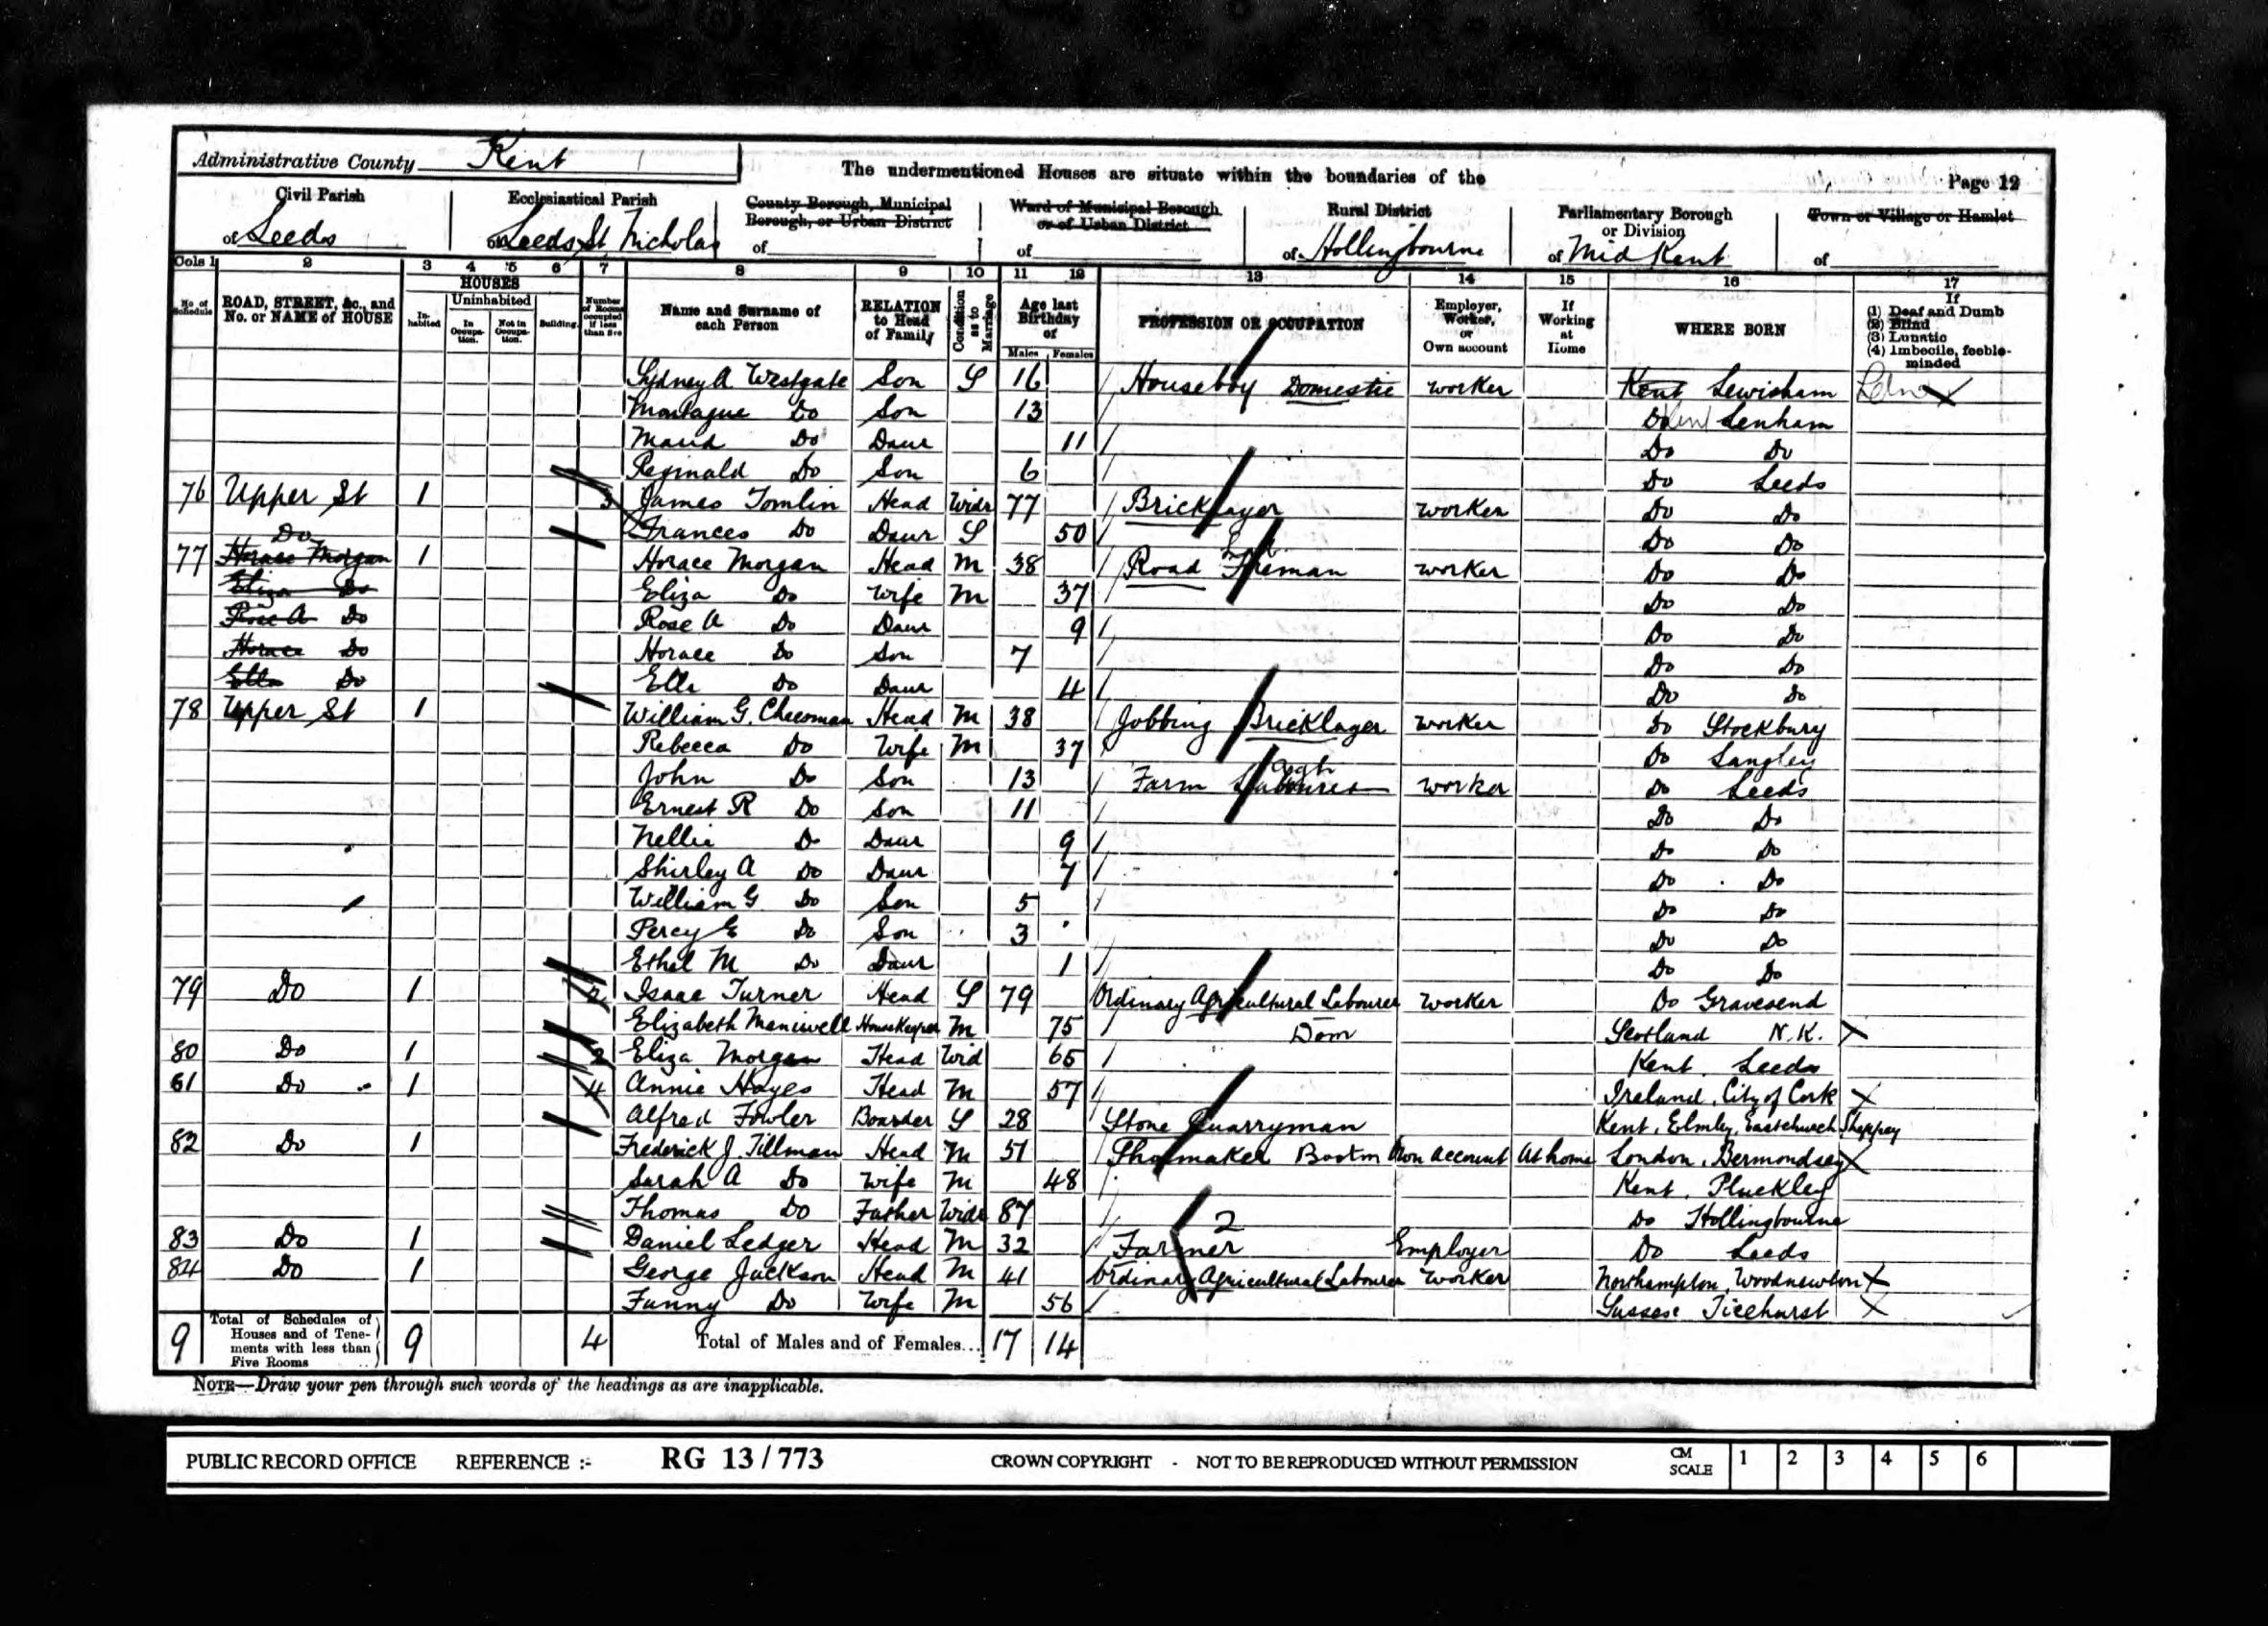 Administrative County Kent
The undermentioned Houses are situate within the boundaries of the
Page 12
Civil Parish of Leeds
Ecclesiastical Parish of Leeds St Nicholas
County Borough, Municipal Borough, or Urban District of
Ward of Municipal Borough or of Urban District of
Rural District of Hollingbourne
Parliamentary Borough or Division of Mid Kent
Town or Village or Hamlet of
Cols 1 2 3 4 5 6 7 8 9 10 11 12 13 14 15 16 17
No. of Schedule
ROAD, STREET, &c., and No. or NAME of HOUSE
HOUSES
Inhabited
Uninhabited
In Occupation.
Not in Occupation.
Building.
Number of Rooms occupied if less than five
Name and Surname of each Person
RELATION to Head of Family
Condition as to Marriage
Age last Birthday of
Males Females
PROFESSION OR OCCUPATION
Employer, Worker, or Own account
If Working at Home
WHERE BORN
If (1) Deaf and Dumb (2) Blind (3) Lunatic (4) Imbecile, feeble-minded
Sydney A Westgate Son S 16 Houseboy Domestic worker Kent Lewisham
Montague Do Son 13 Do Lenham
Maud Do Daur 11 Do Do
Reginald Do Son 6 Do Leeds
76 Upper St 1 3 James Tomlin Head Widr 77 Bricklayer worker Do Do
Frances Do Daur S 50 Do Do
77 Do Horace Morgan 1 Horace Morgan Head M 38 Road worker Do Do
Eliza Do Eliza Do Wife M 37 Do Do
Rose A Do Rose A Do Daur 9 Do Do
Horace Do Horace Do Son 7 Do Do
Ella Do Ella Do Daur 4 Do Do
78 Upper St 1 William G. Cheesman Head M 38 Jobbing Bricklayer worker Do Stockbury
Rebecca Do Wife M 37 Do Langley
John Do Son 13 Farm Labourer worker Do Leeds
Ernest R Do Son 11 Do Do
Nellie Do Daur 9 Do Do
Shirley A Do Daur 7 Do Do
William G Do Son 5 Do Do
Percy E Do Son 3 Do Do
Ethel M Do Daur 1 Do Do
79 Do 1 2 Isaac Turner Head S 79 Ordinary Agricultural Labourer worker Do Gravesend
Elizabeth Housekeeper M 75 Dom Scotland N.K.
80 Do 1 2 Eliza Morgan Head Wid 65 Kent. Leeds
81 Do 1 4 Annie Hayes Head M 57 Ireland, City of Cork
Alfred Fowler Boarder S 28 Stone Quarryman Kent, Elmley, Eastchurch Sheppey
82 Do 1 Frederick J. Tillman Head M 51 Shoemaker Own account At home London, Bermondsey
Sarah A Do Wife M 48 Kent, Pluckley
Thomas Do Father Widr 87 Do Hollingbourne
83 Do 1 Daniel Ledger Head M 32 Farmer 2 Employer Do Leeds
84 Do 1 George Jackson Head M 41 Ordinary Agricultural Labourer worker Northampton, Woodnewton
Fanny Do Wife M 56 Sussex Ticehurst
9 Total of Schedules of Houses and of Tenements with less than Five Rooms 9 4 Total of Males and of Females... 17 14
NOTE—Draw your pen through such words of the headings as are inapplicable.
PUBLIC RECORD OFFICE REFERENCE :- RG 13 / 773 CROWN COPYRIGHT - NOT TO BE REPRODUCED WITHOUT PERMISSION CM SCALE 1 2 3 4 5 6